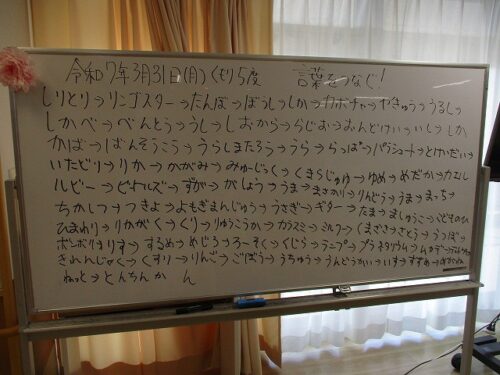 令和7年3月31日(月)くもり5度 言葉をつなぐ!
しりとり→リンゴスター→たんぼ→ぼうし→しか→カボチャ→やきゅう→うるし→
しかべ→べんとう→うし→しおから→らじお→おんどけい→いし→しか
かば→ばんそうこう→うらしまたろう→うら→らっぱ→パラシュート→とけいだい→
いたどり→りか→かがみ→みゅーじっく→くまらじゅゆ→ゆめ→めだか→
ルビー→ずが→がしょう→うま→まさかり→りんどう→うま→まっち→
ちかしつ→つきよ→よもぎまんじゅう→うさぎ→ギター→たま→
ひまわり→りかがく→くり→りゅうこうか→カラスミ→ミルク→くまざさ→さとう→うっぽ→
ボンボリ→りす→するめ→めじろ→ろーそく→くじら→ランプ→プラネタリウム→
きれんじゃく→くすり→りんご→ごぼう→うちゅう→うんどうかい→いす→すずめ→
ねっと→とんちんかん